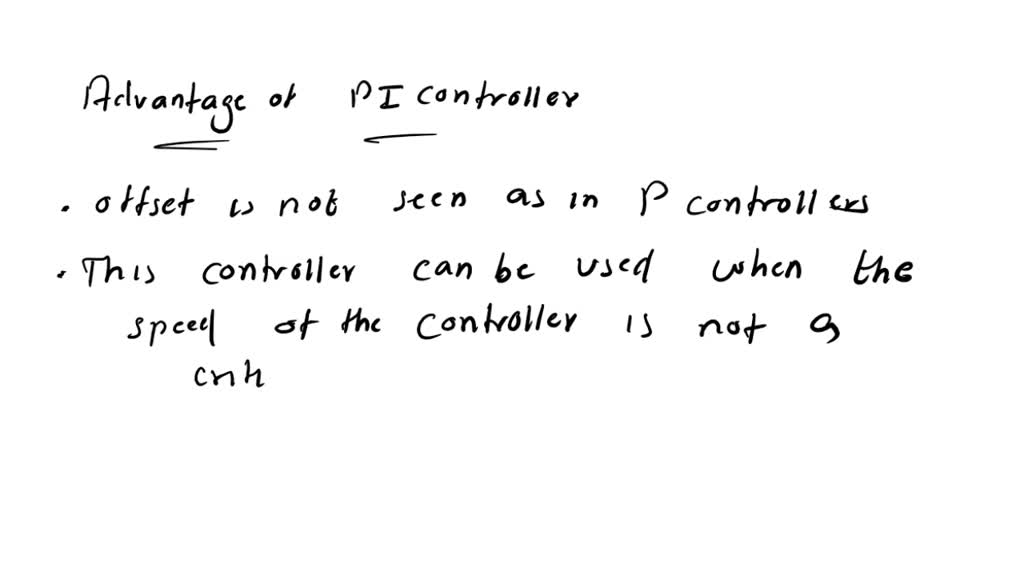 Advantage of PI controller
. offset is not seen as in P controllers
. This controller can be used when the
speed of the controller is not a